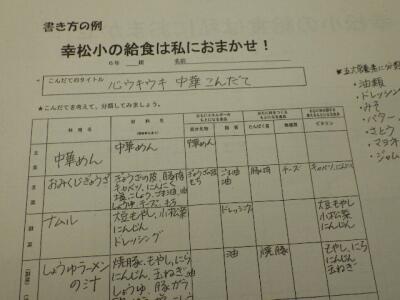 書き方の例
幸松小の給食は私におまかせ！
6年 組 名前
こんだてのタイトル
心ウキウキ 中華こんだて
★こんだてを考えて、分類してみましょう。
料理名
材料名
炭水化物
脂質
たんぱく質
無機質
ビタミン
主食
中華めん
中華めん
中華めん
おみくじぎょうざ
ぎょうざの皮、豚肉
キャベツ、にんにく
塩、こしょう、ごま油、油
しょうゆ、チーズ、もち
ぎょうざの皮
もち
ごま油
油
豚肉
チーズ
キャベツ、にんにく
ナムル
大豆もやし、小松菜
にんじん
ドレッシング
ドレッシング
大豆もやし
小松菜
にんじん
しょうゆラーメン
の汁
焼豚、もやし、にら
にんじん、玉ねぎ
しょうゆ、豚ガラ
油
焼豚
もやし、にら
にんじん
玉ねぎ
・油類
・ドレッシング
・みそ
・バター
・さとう
・マヨネ
・ジャム